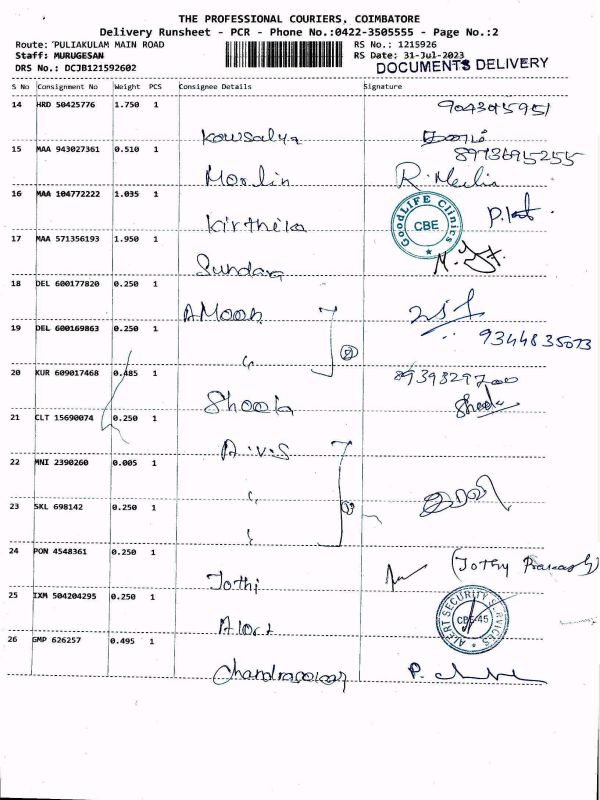 THE PROFESSIONAL COURIERS, COIMBATORE
Delivery Runsheet - PCR - Phone No.:0422-3505555 - Page No.:2
Route: PULIAKULAM MAIN ROAD RS No.: 1215926
Staff: MURUGESAN RS Date: 31-Jul-2023
DRS No.: DCJB121592602 DOCUMENTS DELIVERY
S No Consignment No Weight PCS Consignee Details Signature
14 HRD 50425776 1.750 1
Kowsalya
15 MAA 943027361 0.510 1
Merlin R. Merlin
16 MAA 104772222 1.035 1
Kirthika
GoodLIFE Clinics CBE
17 MAA 571356193 1.950 1
Sundara
18 DEL 600177820 0.250 1
AMoon
19 DEL 600169863 0.250 1 9344835073
"
20 KUR 609017468 0.485 1
Sheela Sheela
21 CLT 15690074 0.250 1
A.V.S
22 MNI 2390260 0.005 1
"
23 SKL 698142 0.250 1
"
24 PON 4548361 0.250 1 (Jothy Prakash)
Jothi
25 IXM 504204295 0.250 1
Alert ALERT SECURITY SERVICES CBE-45
26 GMP 626257 0.495 1